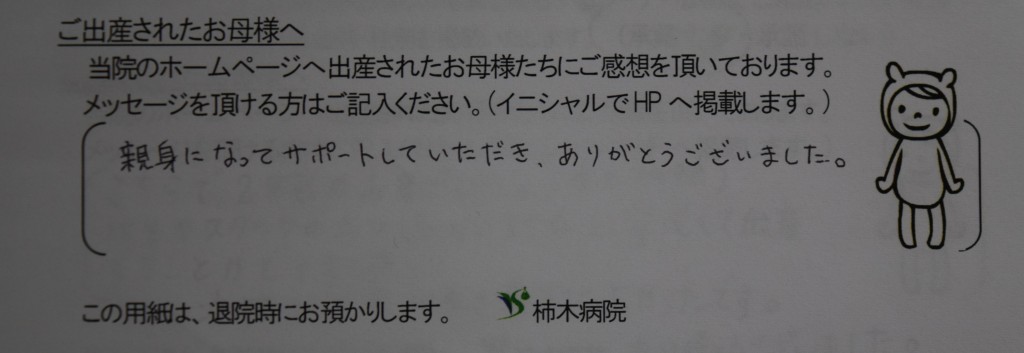 ご出産されたお母様へ
当院のホームページへ出産されたお母様たちにご感想を頂いております。
メッセージを頂ける方はご記入ください。(イニシャルでHPへ掲載します。)
親身になってサポートしていただき、ありがとうございました。
この用紙は、退院時にお預かりします。 柿木病院